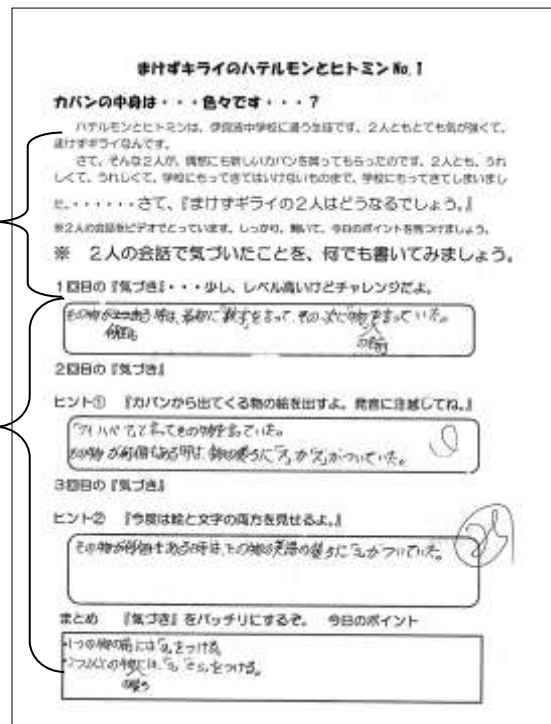 まけずキライのハテルモンとヒトミン No.1
カバンの中身は・・・色々です・・・?
ハテルモンとヒトミンは、伊良波中学校に通う生徒です。2人ともとても気が強くて、
まけずキライなんです。
さて、そんな2人が、偶然にも新しいカバンを買ってもらったのです。2人とも、うれ
しくて、うれしくて、学校にもってきてはいけないものまで、学校にもってきてしまいまし
た。・・・・・・さて、『まけずギライの2人はどうなるでしょう。』
※2人の会話をビデオでとっています。しっかり、聞いて、今日のポイントを見つけましょう。
※ 2人の会話で気づいたことを、何でも書いてみましょう。
1回目の『気づき』・・・少し、レベル高いけどチャレンジだよ。
その物が ある時は、最初に「数字」を言って、その次に「物」を言っていた。
何個も
の名前
2回目の『気づき』
ヒント① 『カバンから出てくる物の絵を出すよ。発音に注意してね。』
「アイ ハブ ア」と言ってその物を言っていた。
その物が何個もある時は、物の最うに「ス」か「ズ」がついていた。
3回目の『気づき』
ヒント② 『今度は絵と文字の両方を見せるよ。』
その物が何個もある時は、その物の英語の最うに「s」がついていた。
まとめ 『気づき』をバッチリにするぞ。 今日のポイント
・1つの物の前には「a」をつける。
・2つ以上の物には、「s」「es」をつける。